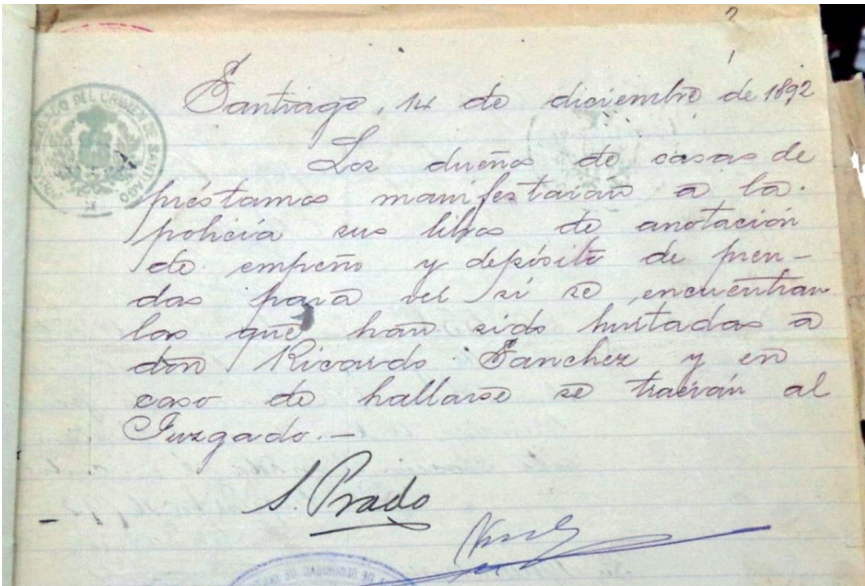 2
Santiago, 14 de diciembre de 1892
Los dueños de casas de
préstamos manifestarán a la
policía sus libros de anotación
de empeño y depósito de pren-
das para ver si se encuentran
las que han sido hurtadas a
don Ricardo Sanchez y en
caso de hallarse se traerán al
Juzgado.—
S. Prado
DEL CRIMEN DE SANTIAGO